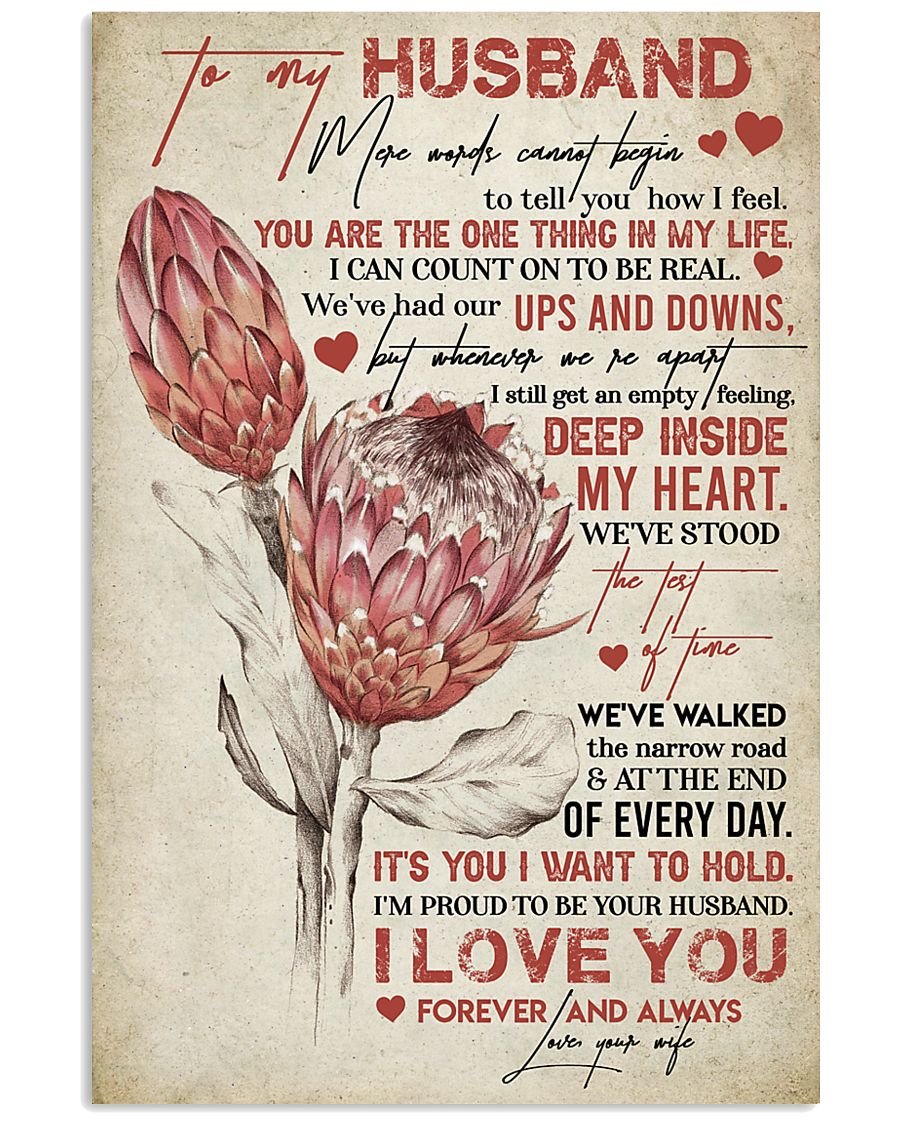 To my HUSBAND
Mere words cannot begin
to tell you how I feel.
YOU ARE THE ONE THING IN MY LIFE,
I CAN COUNT ON TO BE REAL.
We've had our UPS AND DOWNS,
but whenever we re apart
I still get an empty feeling,
DEEP INSIDE
MY HEART.
WE'VE STOOD
the test
of time
WE'VE WALKED
the narrow road
& AT THE END
OF EVERY DAY.
IT'S YOU I WANT TO HOLD.
I'M PROUD TO BE YOUR HUSBAND.
I LOVE YOU
FOREVER AND ALWAYS
Love, your wife